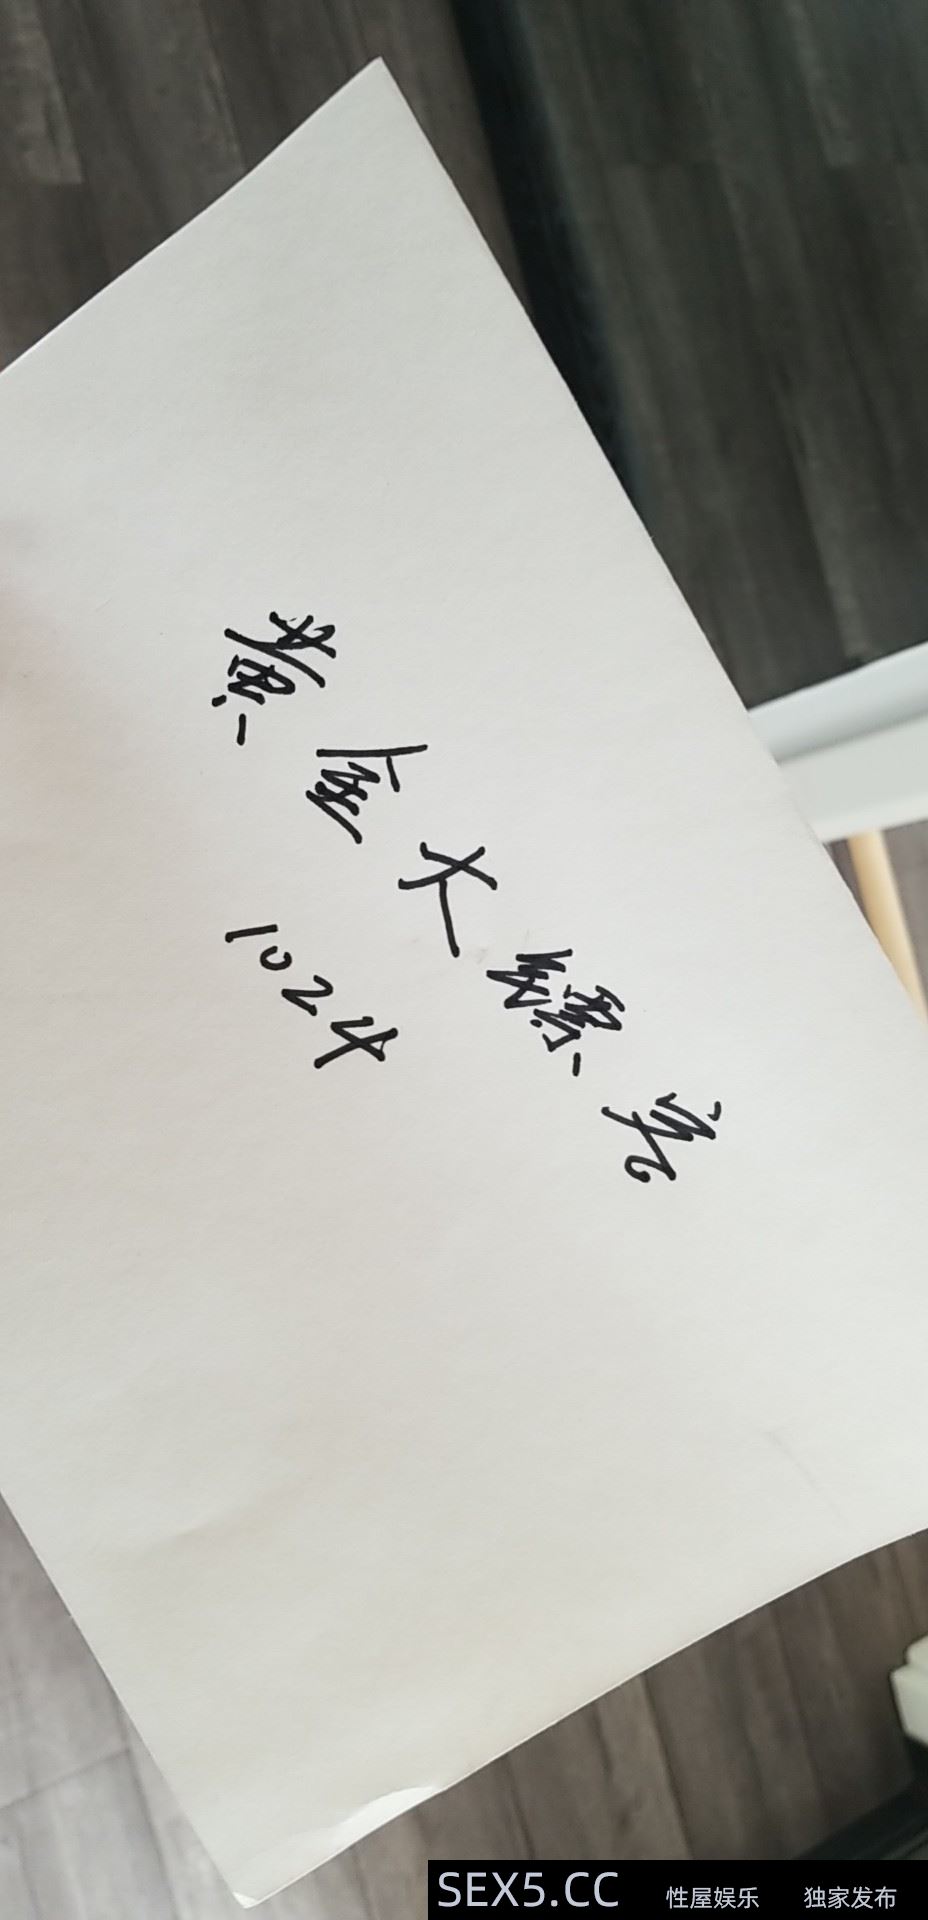 黄金大镖客
1024
SEX5.CC 性屋娱乐 独家发布